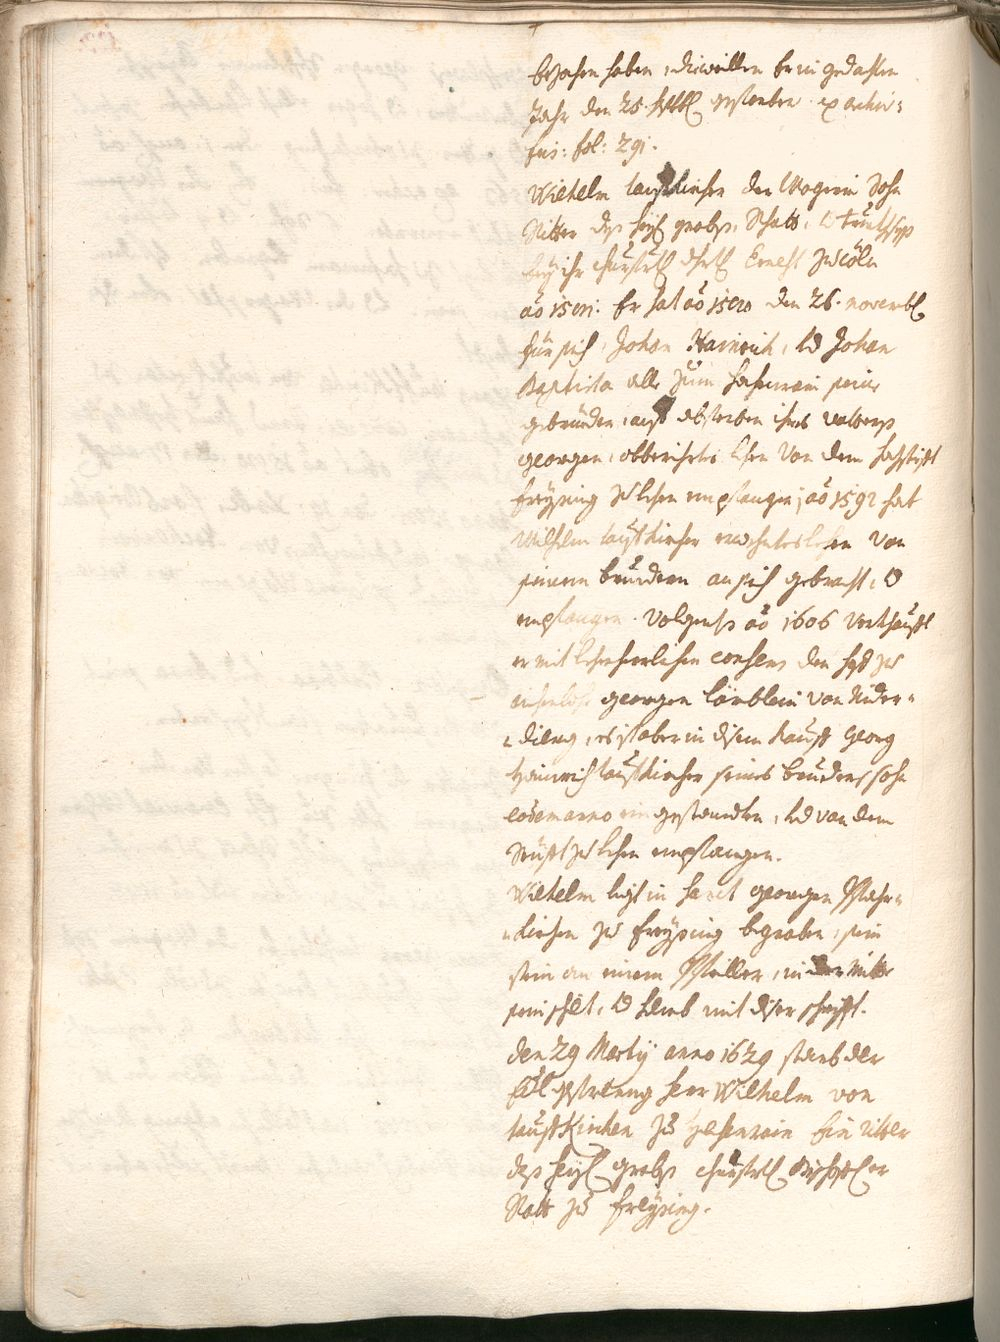 beschehen haben, dieweillen er in gedachten
Jahr den 25. 7bris gestorben ex actis:
fris: fol: 291.
Wilhelm taufkircher der Wagerin Sohn
Ritter deß heyl: grabs, Rhatt, und truchsess
bey ihr churfrtl. dhrtl. Ernest zu Cöln
ao 1591: Er hat ao 1590 den 26. novemb:
für sich, Johan Hainrich, und Johan
Baptista alle zum hohenrain seine
gebrüeder, auf absterben ihres vatters
georgen, obberichte lehen von dem hochstift
freysing zu lehen empfangen; ao 1592 hat
Wilhelm taufkircher erwehntes lehen von
seinem bruedern an sich gebracht, und
empfangen. Volgents ao 1606 verkauft
er mit lehenherrlichen consens den hof zu
georgen lärblein von Nider-
ding, es ist aber in disem Kauff Georg
Hainrich taufkircher seines brueders sohn
eodem anno eingestandten, und von dem
stüfft zu lehen empfangen.
Wilhelm ligt in Sanct georgen Pfahr-
kirchen zu freysing begraben, sein
stein an einem Pfeiller, in der mitte
sein schilt, und helmb mit diser schrifft.
den 29 Martij anno 1629 starb der
Edl gestreng herr Wilhelm von
taufkirchen zu hohenrain Ein ritter
deß heyl: grabs churfrtl. Bischoffl. er
Ratt zu freysing.